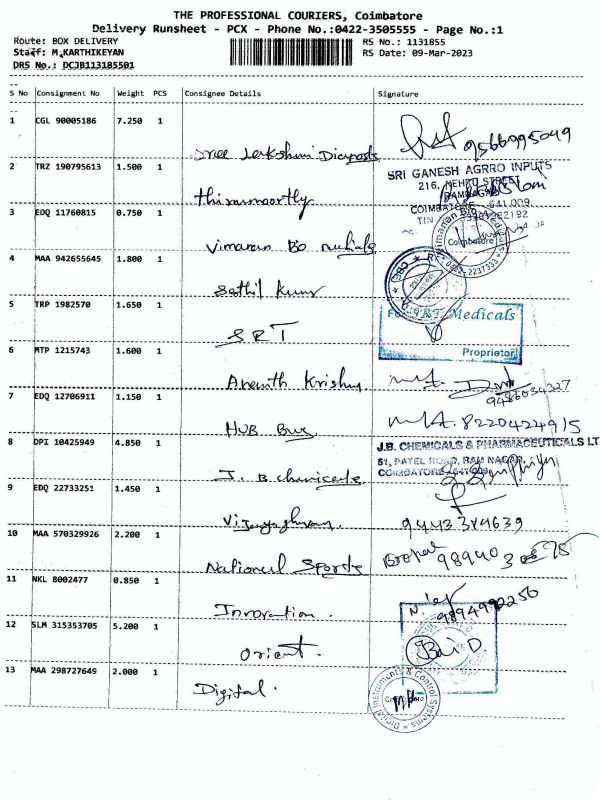 THE PROFESSIONAL COURIERS, Coimbatore
Delivery Runsheet - PCX - Phone No.:0422-3505555 - Page No.:1
Route: BOX DELIVERY RS No.: 1131855
Staff: M.KARTHIKEYAN RS Date: 09-Mar-2023
DRS No.: DCJB113185501
S No Consignment No Weight PCS Consignee Details Signature
1 CGL 90005186 7.250 1
Sree 9566995049
2 TRZ 190795613 1.500 1 SRI GANESH AGRRO INPUTS
216, NEHRU STREET
RAMNAGAR
Thirumoorthy COIMBATORE 641 009
3 EDQ 11760815 0.750 1 TIN
Vimaran Bo Coimbatore
0422-2237333
4 MAA 942655645 1.800 1
Sethil Kumr
5 TRP 1982570 1.650 1 For SRT Medicals
SRT
6 MTP 1215743 1.600 1 Proprietor
Ananth Krishn
9486034327
7 EDQ 12706911 1.150 1
HUB Bus 8220422915
8 DPI 10425949 4.850 1 J.B. CHEMICALS & PHARMACEUTICALS LT
51, PATEL ROAD, RAM NAGAR,
J. B chemicals COIMBATORE - 641 009
9 EDQ 22733251 1.450 1
Vijayaghvan. 9443384639
10 MAA 570329926 2.200 1
National Sports 98940
11 NKL 8002477 0.850 1
Innovation. 9894992250
12 SLM 315353705 5.200 1
Orient.
13 MAA 298727649 2.000 1
Digital. Digital Instruments & Control Systems